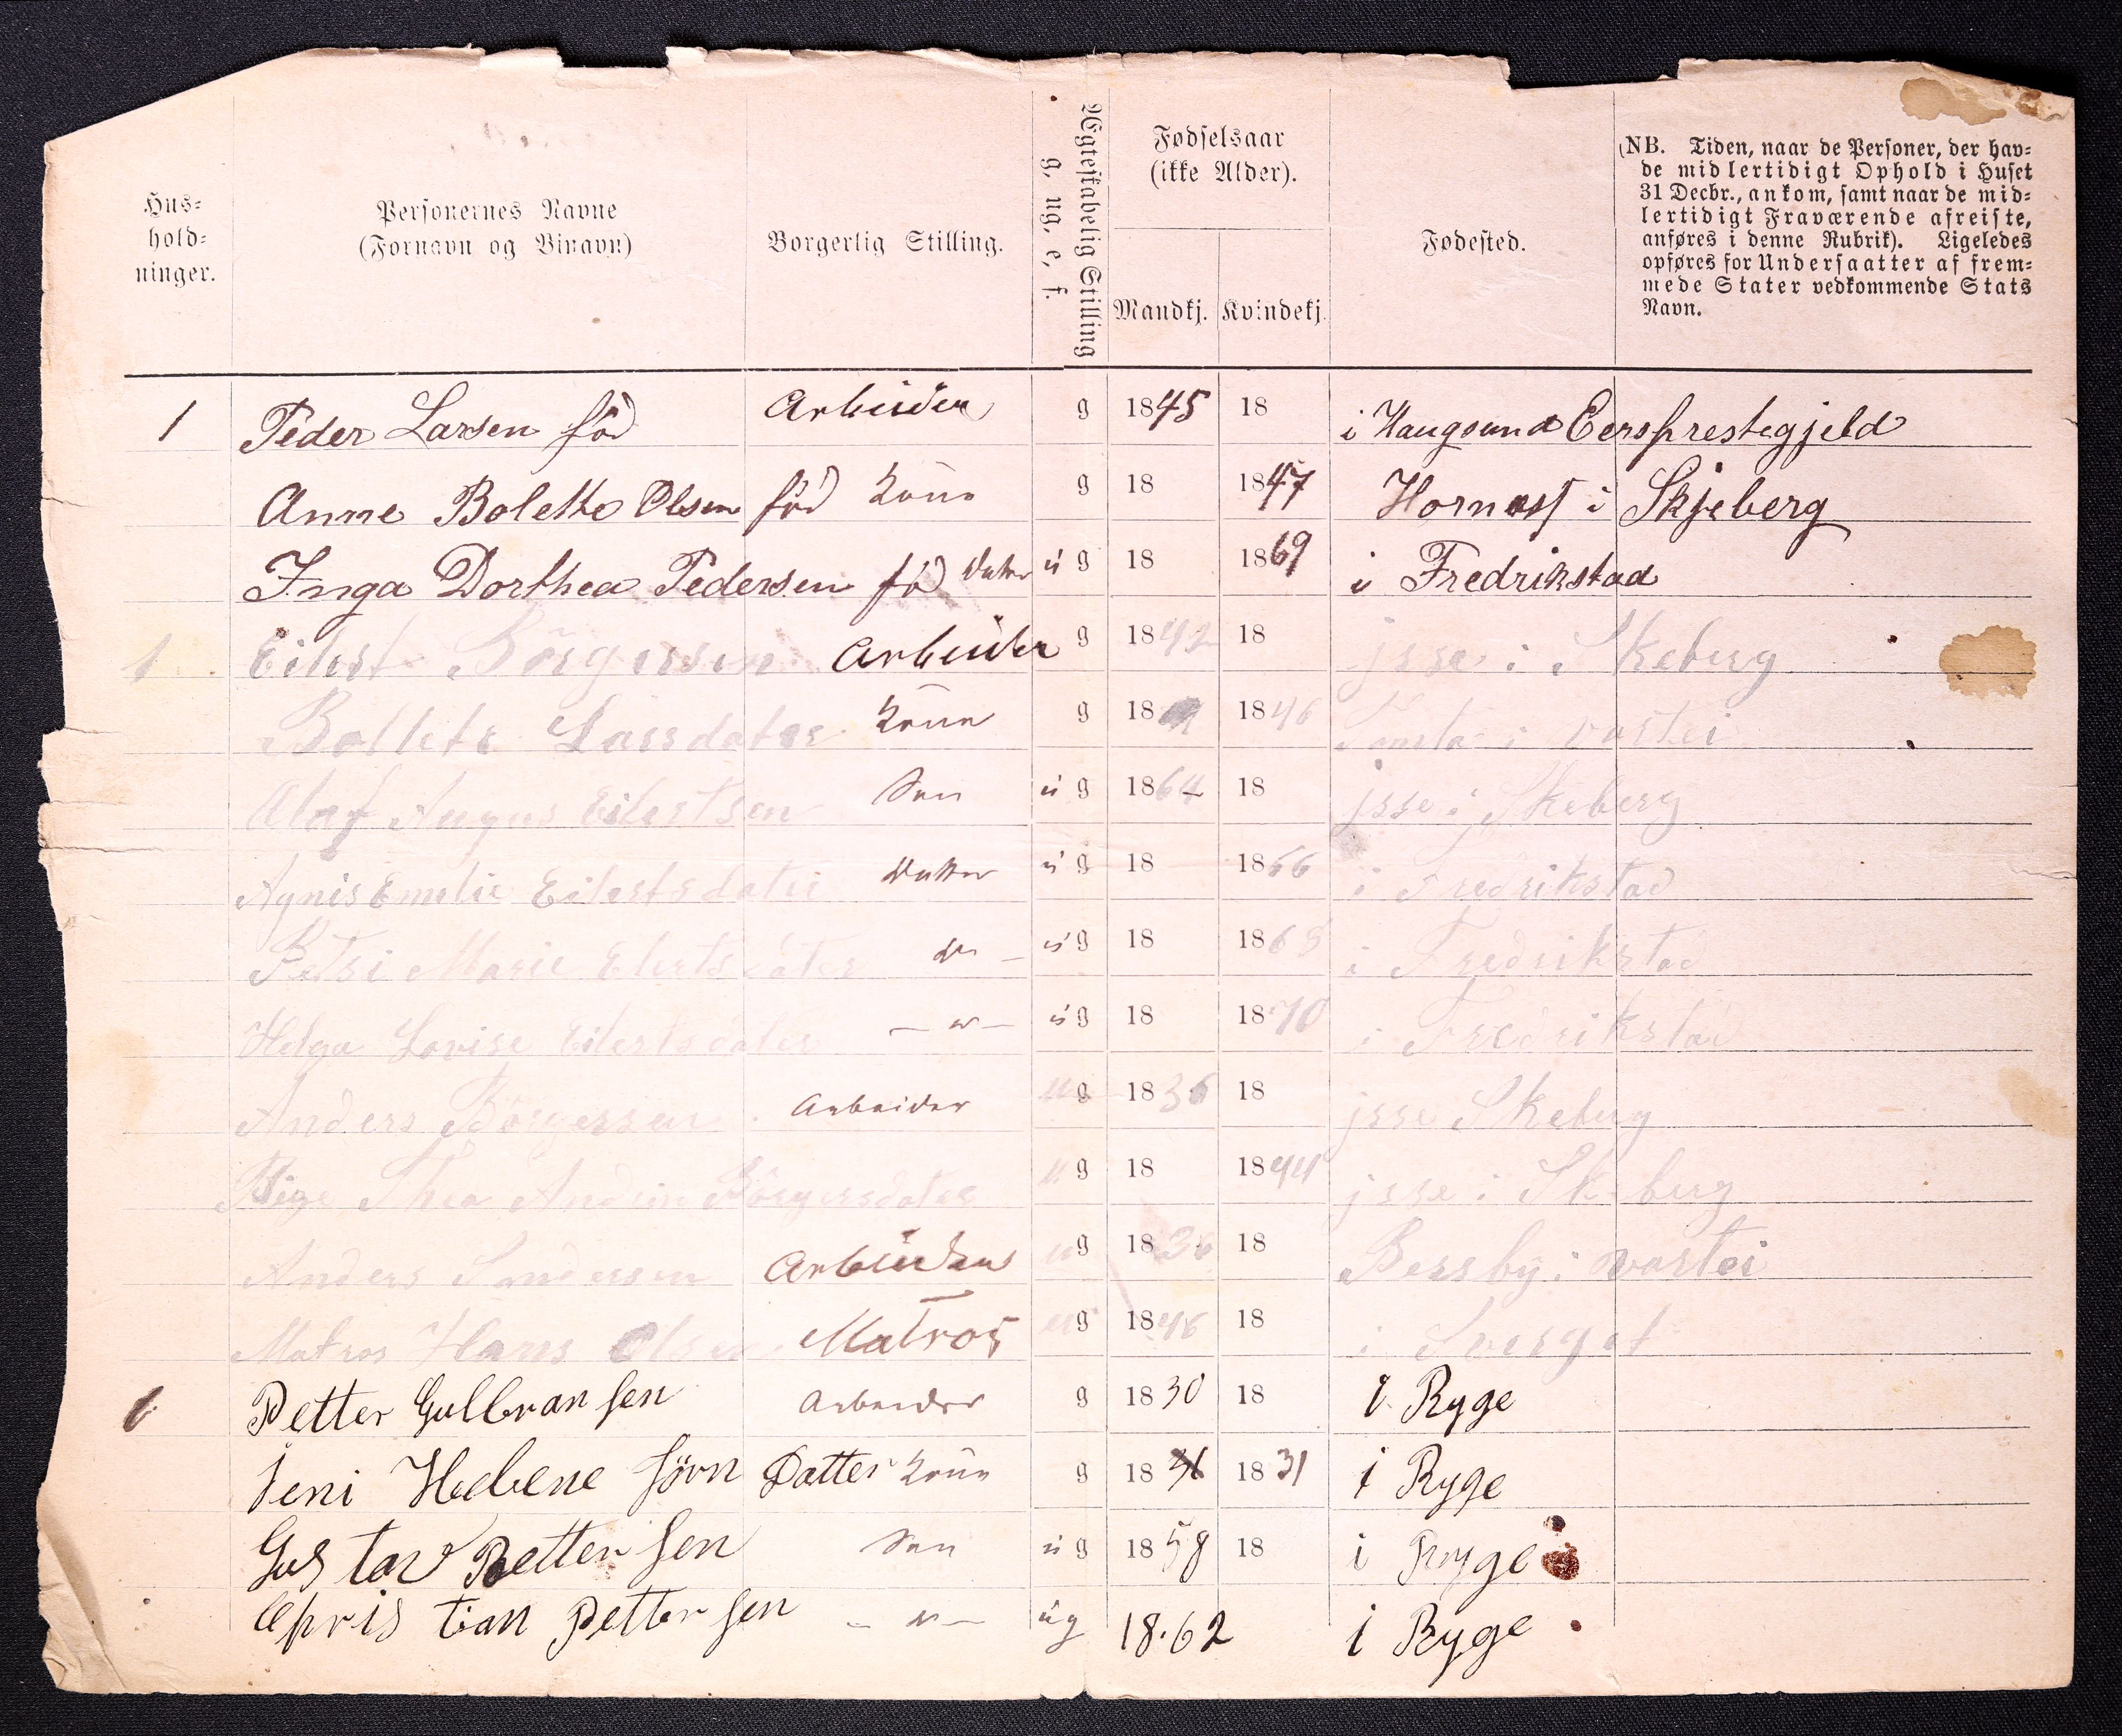 Hus-
hold-
ninger.
Personernes Navne
(Fornavn og Binavn)
Borgerlig Stilling.
Ægteskabelig Stilling
g, ug, e, f.
Fødselsaar
(ikke Alder).
Mandkj. Kvindekj.
Fødested.
(NB. Tiden, naar de Personer, der hav-
de midlertidigt Ophold i Huset
31 Decbr., ankom, samt naar de mid-
lertidigt Fraværende afreiste,
anføres i denne Rubrik). Ligeledes
opføres for Undersaatter af frem-
mede Stater vedkommende Stats
Navn.
1 Peder Larsen föd Arbeider g 1845 18 i Haugsund Eersprestegjeld
Anne Bolette Olsen föd Kone g 18 1847 Hornes i Skjeberg
Inga Dorthea Pedersen fö Datter ug 18 1869 i Fredrikstad
1 Eilert Börgersen Arbeider g 1842 18 jsse i Skeberg
Bollete Larsdater Kone g 18 1846 Tomta i vastei
Olaf Augus Eilertsen Søn ug 1864 18 jsse i Skeberg
Agnis Emelie Eilertsdater Datter ug 18 1866 i Fredrikstad
Betsi Marie Elertsdater ug 18 1868 i Fredrikstad
Helga Lovise Eilertsdater ug 18 1870 i Fredrikstad
Anders Börgersen Arbeider ug 1836 18 jsse Skeberg
Pige Thea Andrin Börgersdater ug 18 1844 jsse i Skeberg
Anders Andersen Arbeider ug 1836 18 Bessby i vastei
Matros Hans Olsen Matros ug 1846 18 i Sverget
1 Petter Gulbransen Arbeider g 1830 18 i Ryge
Jeni Helene Jörn Datter Kone g 18 1831 i Ryge
Gustav Pettersen Søn ug 1858 18 i Ryge
Christian Pettersen - " - ug 18.62 i Ryge